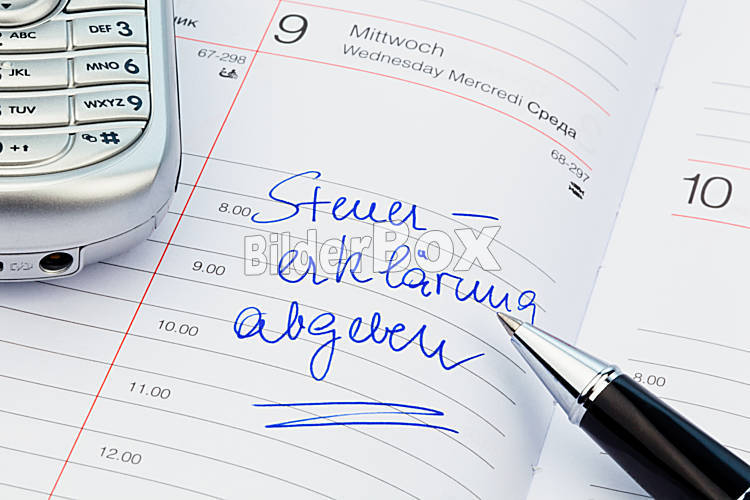 ABC
DEF 3
JKL
MNO 6
TUV
WXYZ 9
+ ⇑
#
ник
67-298
9
Mittwoch
Wednesday Mercredi Среда
68-297
10
8.00
Steuer –
BilderBOX
9.00
erklärung
10.00
abgeben
11.00
12.00
8.00